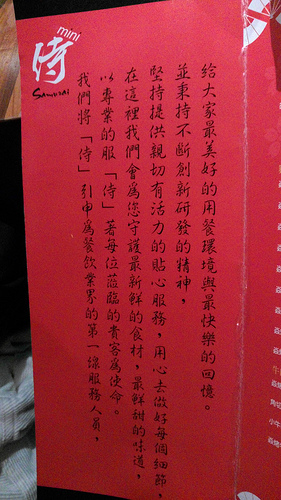 mini
侍
Samurai
我們將「侍」引申為餐飲業界的第一線服務人員，
以專業的服「侍」著每位蒞臨的貴客為使命。
在這裡我們會為您守護最新鮮的食材，最鮮甜的味道，
堅持提供親切有活力的貼心服務，用心去做好每個細節，
並秉持不斷創新研發的精神，
給大家最美好的用餐環境與最快樂的回憶。